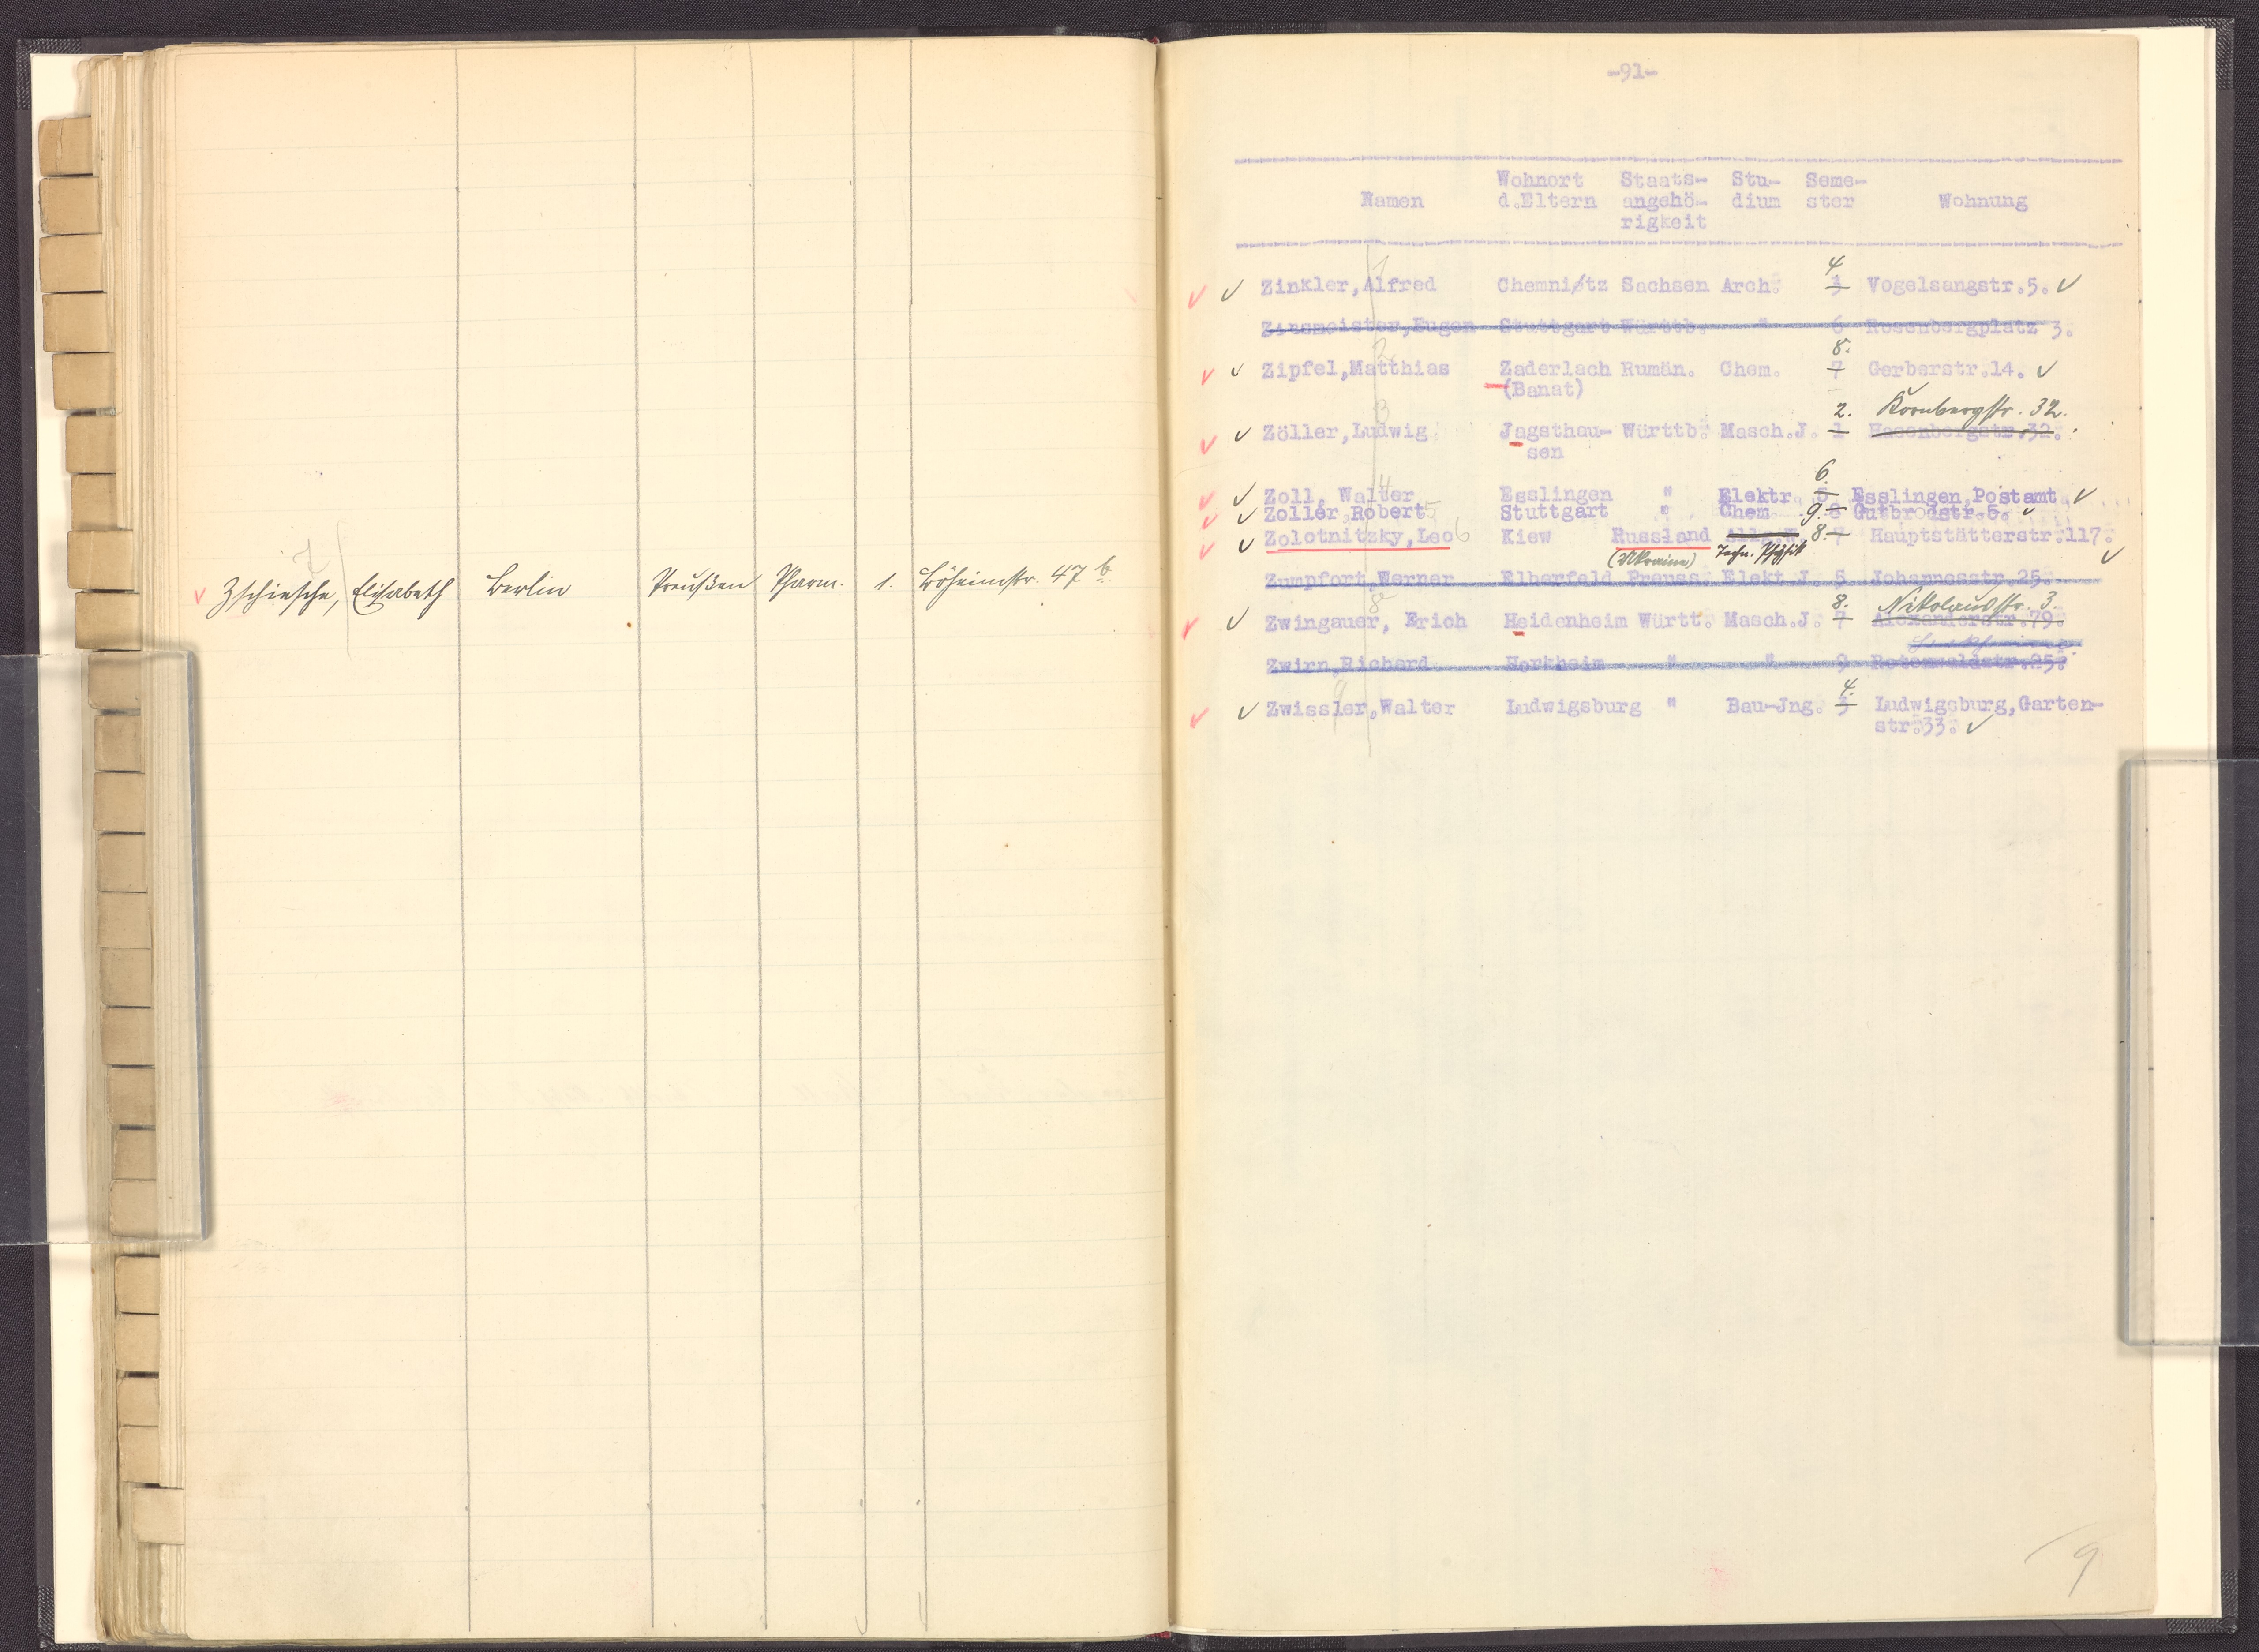 7
Zschiesche, Elisabeth Berlin Preußen Pharm. 1. Böheimstr. 47 b.
-91-
Namen Wohnort d.Eltern Staats-angehö-rigkeit Stu-dium Seme-ster Wohnung
1 4
Zinkler,Alfred Chemnitz Sachsen Arch. 3 Vogelsangstr.5.
Zinsmeister,Eugen Stuttgart Württb. " 6 Rosenbergplatz 3.
2 8.
Zipfel,Matthias Zaderlach Rumän. Chem. 7 Gerberstr.14.
(Banat)
3 2. Kornbergstr. 32.
Zöller,Ludwig Jagsthau- Württb. Masch.J. 1 Hasenbergstr.32.
sen
4 6.
Zoll, Walter Esslingen " Elektr. 5 Esslingen,Postamt
Zoller,Robert 5 Stuttgart " Chem. 9. 8 Gutbrodstr.5.
Zolotnitzky,Leo 6 Kiew Russland Allg.W. 8. 7 Hauptstätterstr.117.
(Ukraine) Techn. Physik
Zumpfort,Werner Elberfeld Preuss. Elekt.J. 5 Johannesstr.25.
8 8. Nikolausstr. 3.
Zwingauer, Erich Heidenheim Württ. Masch.J. 7 Alexanderstr.79.
Zwirn,Richard Horkheim " " 9 Rotenwaldstr.25.
9 4.
Zwissler,Walter Ludwigsburg " Bau-Jng. 3 Ludwigsburg,Garten-
str.33.
9